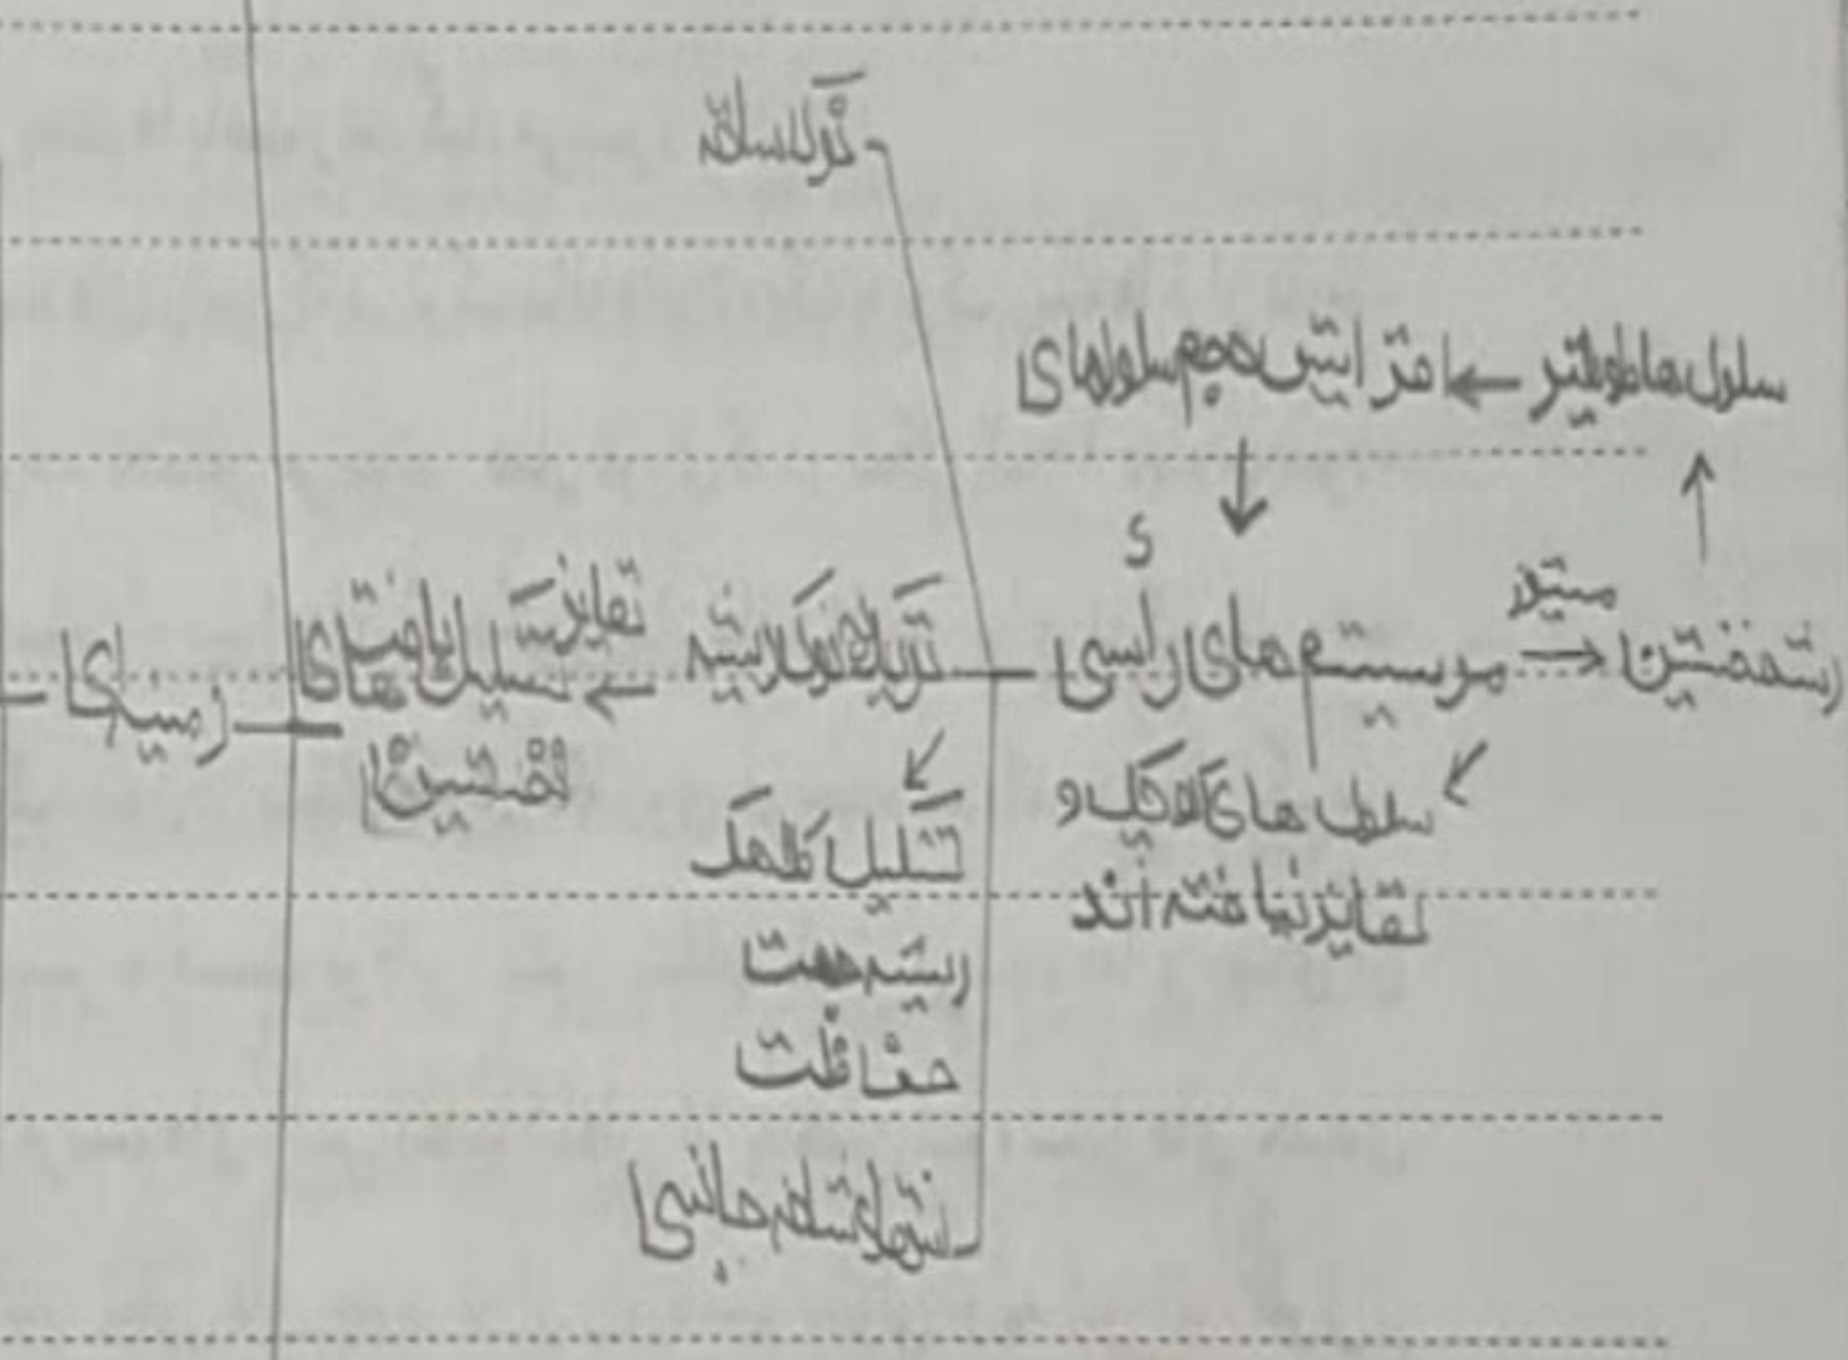 نوک ساقه
سلول ها طویلتر ← افزایش حجم سلولهای
رشد نخستین ← میتوز
مریستم های رأسی
نزدیک نوک ریشه
تمایز ← تشکیل بافت های
نخستین
زمینه ای
سلول های کوچک و
تمایز نیافته اند
تشکیل کلاهک
ریشه جهت
حفاظت
انتهای شاخه جانبی